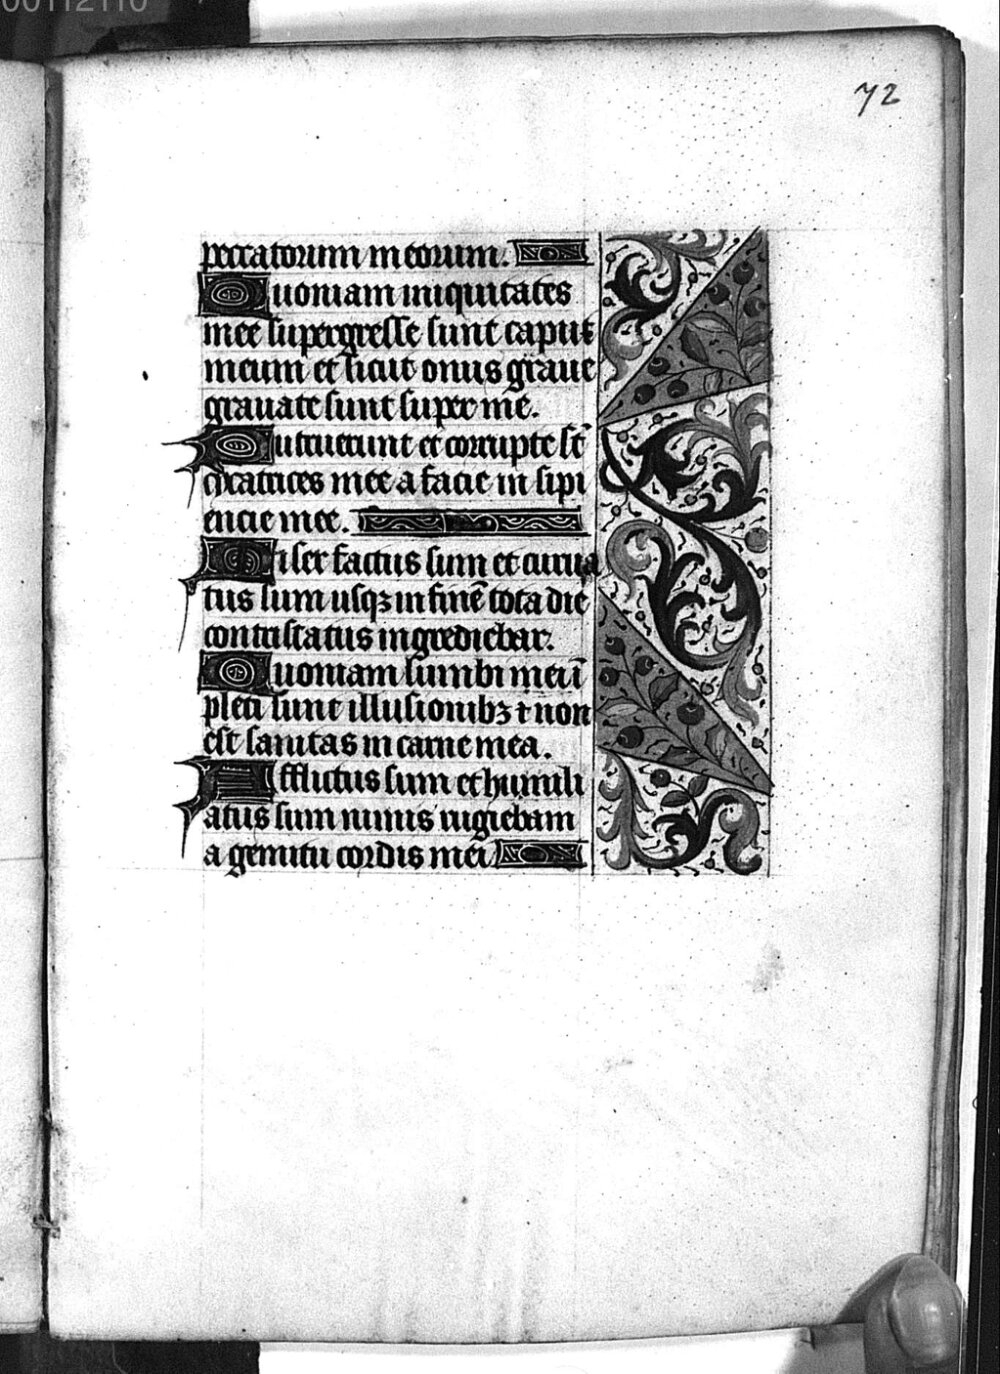 00112110
72
peccatorum meorum.
Quoniam iniquitates
mee supergresse sunt caput
meum et sicut onus graue
grauate sunt super me.
Putruerunt et corrupte st̄
cicatrices mee a facie in sipi
encie mee.
Miser factus sum et curua
tus sum usqꝫ in finē tota die
contristatus ingrediebar.
Quoniam lumbi mei ī
pleti sunt illusionibꝫ ⁊ non
est sanitas in carne mea.
Afflictus sum et humili
atus sum nimis rugiebam
a gemitu cordis mei